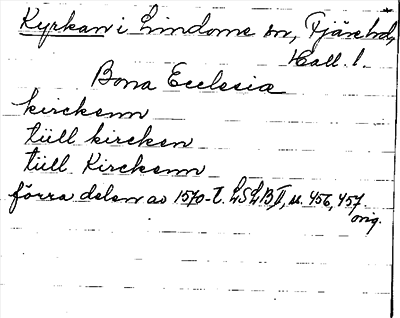 Kyrkan i Lindome sn, Fjäre hd,
Hall. l.
Bona Ecclesia
kirckenn
tüll kircken
tüll Kirckenn
förra delen av 1570-t. LSLB II, s. 456, 457.
orig.